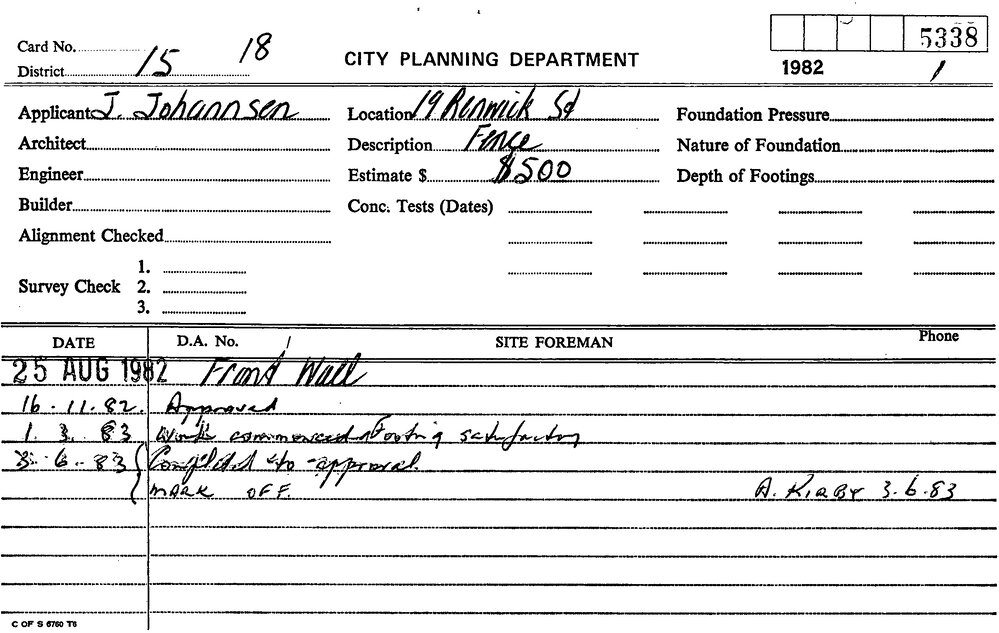 Card No.
District 15 18
CITY PLANNING DEPARTMENT
5338
1982 1
Applicant J. Johannsen
Location 19 Renwick St
Foundation Pressure
Architect
Description Fence
Nature of Foundation
Engineer
Estimate $ $500
Depth of Footings
Builder
Conc. Tests (Dates)
Alignment Checked
Survey Check
1.
2.
3.
DATE D.A. No. / SITE FOREMAN Phone
25 AUG 1982 Front Wall
16.11.82. Approved
1.3.83 Work commenced Footing satisfactory
3.6.83 Completed to approval.
MARK OFF. A. KIRBY 3.6.83
C OF S 6760 T6